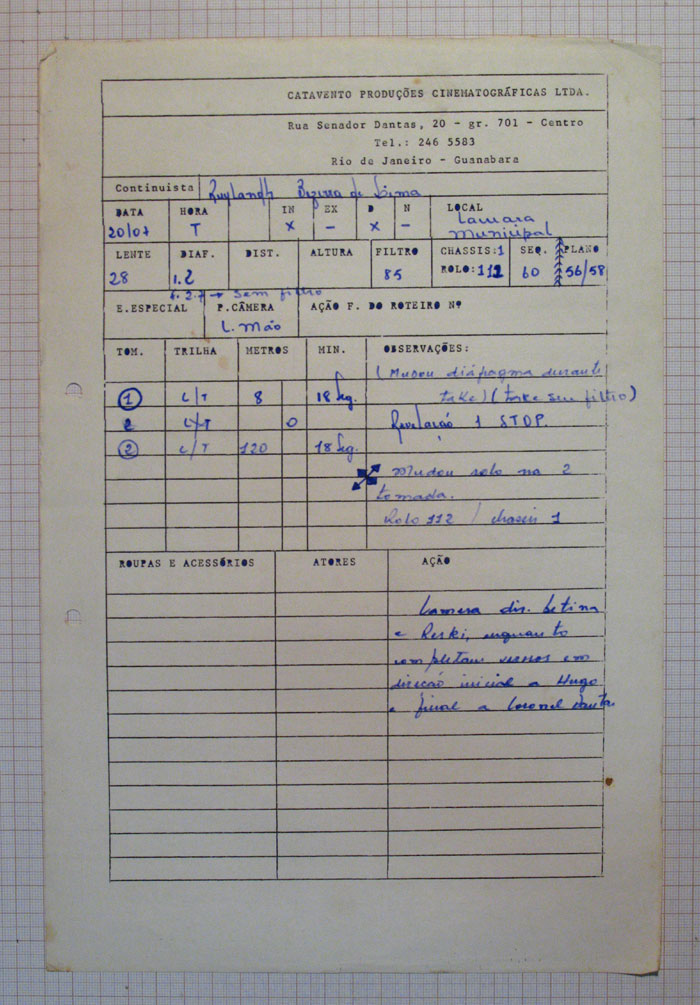 CATAVENTO PRODUÇÕES CINEMATOGRÁFICAS LTDA.
Rua Senador Dantas, 20 - gr. 701 - Centro
Tel.: 246 5583
Rio de Janeiro - Guanabara
Continuista Bezerra de Lima
DATA HORA IN EX D N LOCAL
20/07 T x - x - Camara
Municipal
LENTE DIAF. DIST. ALTURA FILTRO CHASSIS:1 SEQ. PLANO
28 1.2 85 ROLO:112 60 56/58
2.7 → sem filtro
E.ESPECIAL P.CÂMERA AÇÃO F. DO ROTEIRO Nº
C. Mão
TOM. TRILHA METROS MIN. OBSERVAÇÕES:
(Mudou diáfragma durante
1 c/T 8 18 seg. take) (take sem filtro)
2 c/T 0 Revelação 1 STOP.
2 c/T 120 18 seg.
Mudou rolo na 2
tomada.
Rolo 112 / chassis 1
ROUPAS E ACESSÓRIOS ATORES AÇÃO
Camera dis. betina
e Reski, enquanto
completam versos em
direção inicial a Hugo
e final a Coronel